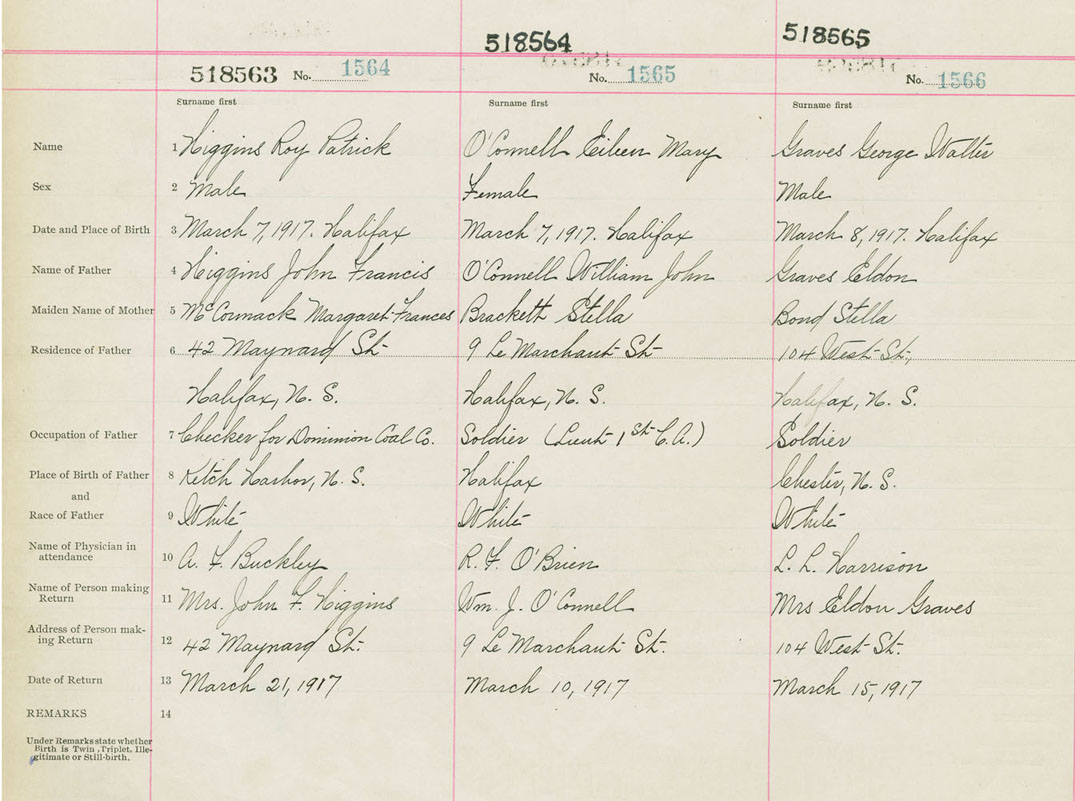 518563 No. 1564
518564
No. 1565
518565
No. 1566
Surname first Surname first Surname first
Name 1 Higgins Roy Patrick O'Connell Eileen Mary Graves George Walter
Sex 2 Male Female Male
Date and Place of Birth 3 March 7, 1917. Halifax March 7, 1917. Halifax March 8, 1917. Halifax
Name of Father 4 Higgins John Francis O'Connell William John Graves Eldon
Maiden Name of Mother 5 McCormack Margaret Frances Brackett Stella Bond Stella
Residence of Father 6 42 Maynard St. 9 Le Marchant St. 104 West St.,
Halifax, N. S. Halifax, N. S. Halifax, N. S.
Occupation of Father 7 Checker for Dominion Coal Co. Soldier (Lieut 1st C.A.) Soldier
Place of Birth of Father 8 Ketch Harbor, N. S. Halifax Chester, N. S.
and
Race of Father 9 White White White
Name of Physician in attendance 10 A. F. Buckley R. F. O'Brien L. L. Harrison
Name of Person making Return 11 Mrs. John F. Higgins Wm. J. O'Connell Mrs Eldon Graves
Address of Person mak-
ing Return 12 42 Maynard St. 9 Le Marchant St. 104 West St.
Date of Return 13 March 21, 1917 March 10, 1917 March 15, 1917
REMARKS 14
Under Remarks state whether
Birth is Twin, Triplet, Ille-
gitimate or Still-birth.